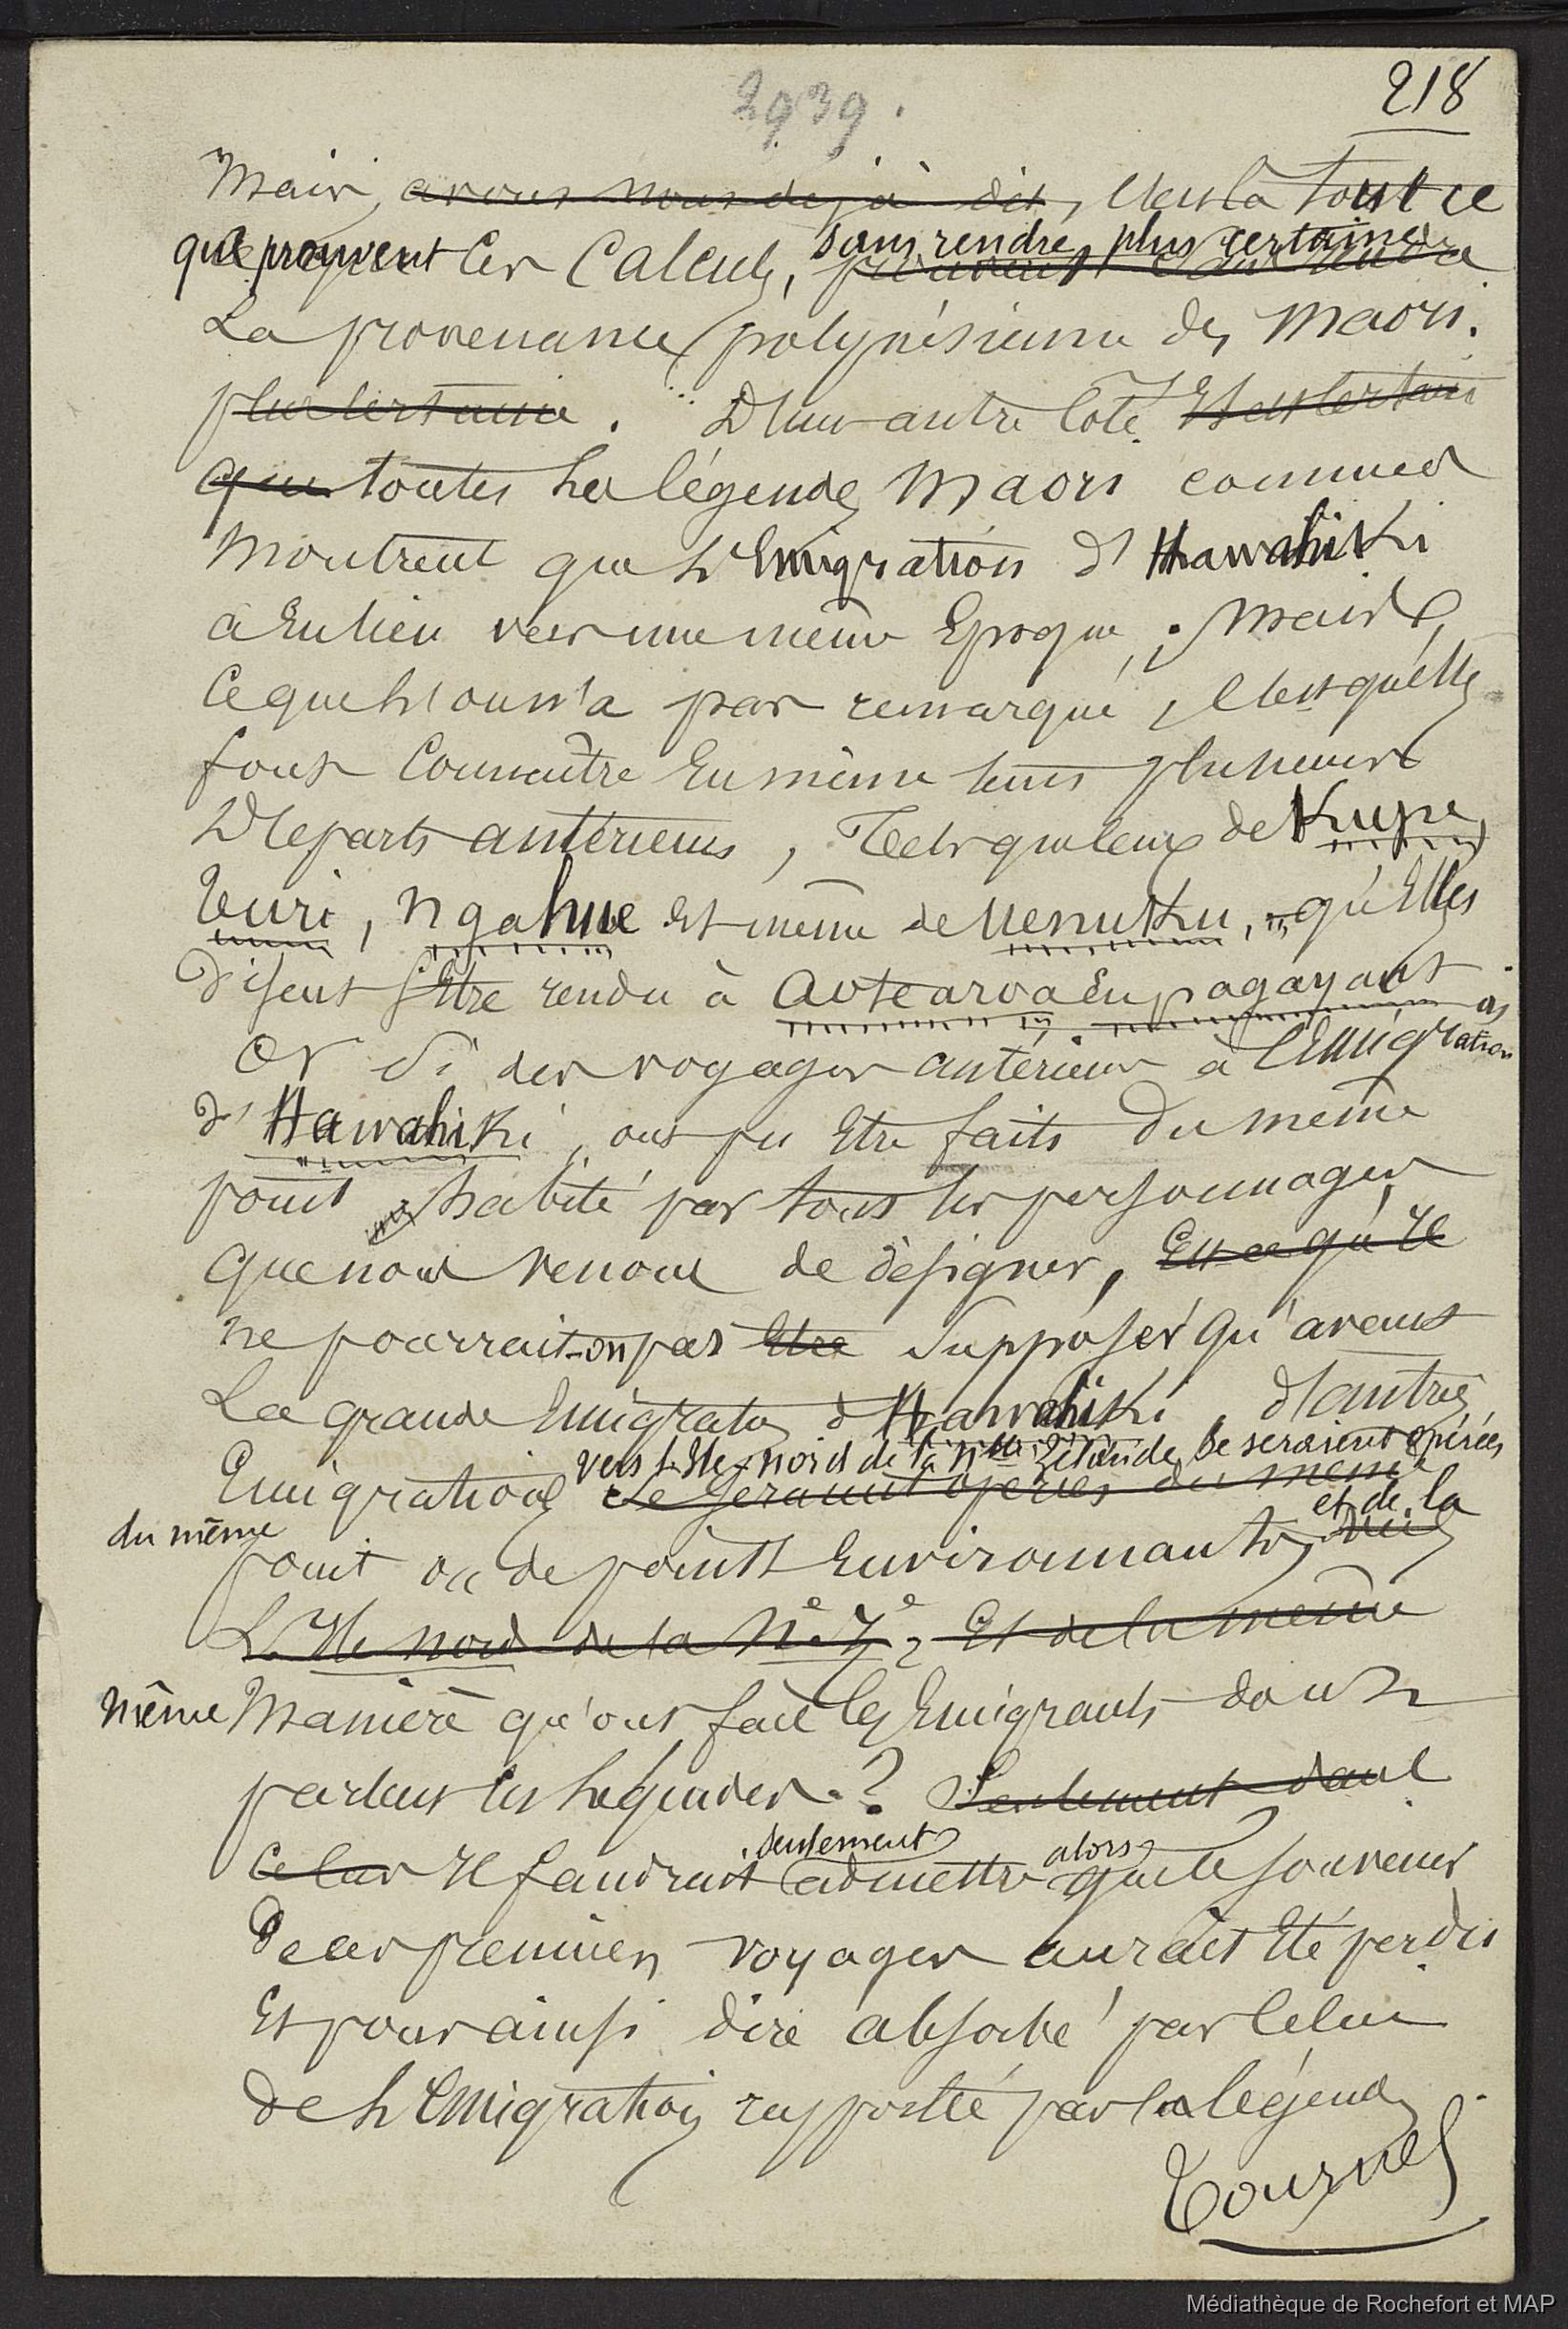 218
2939.
Mais, avons nous déjà dit, c'est là tout ce
que prouvent ces calculs, sans rendre plus certaine
la provenance polynésienne des Maori.
plus certaine. D'un autre côté Il est certain
que toutes les légendes Maori connues
montrent que l'Emigration d'Hawahiki
a eu lieu vers une même Epoque; mais
ce que l'on n'a pas remarqué, c'est qu'elles
font connaître en même tems plusieurs
Départs antérieurs, tels que ceux de Kupe,
Turi, Ngahue et même de Uenuku, qu'Elles
disent s'être rendu à Aotearoa en pagayant
Or si des voyages antérieurs à l'Emigration
d'Hawahiki, ont pu être faits du même
point habité par tous les personnages
que nous venons de désigner, Est-ce qu'il
ne pourrait-on pas être supposer qu'avant
La grande Emigration d'Hawahiki, d'autres
vers l'Ile nord de la Nlle Zélande, se seraient opérées
Emigrations se seraient opérées du même
et de la
du même point ou de points Environnants,
L'Ile nord de la Ne Ze, Et de la même
même Manière qu'ont fait les Emigrants dont
parlent les légendes? Seulement dans
seulement alors
ce cas Il faudrait admettre que le souvenir
De ces premiers voyages aurait Eté perdu
Et pour ainsi dire absorbé par celui
de l'Emigration rapportée par la légende
Tournez
Médiathèque de Rochefort et MAP